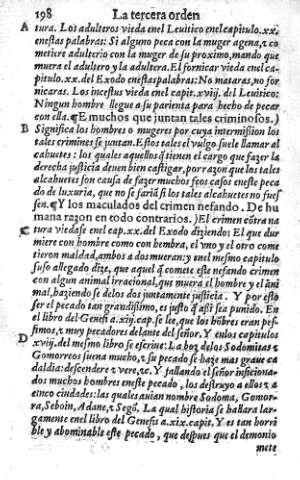 198 La tercera orden
A tura. Los adulteros vieda enel Leuitico enel capitulo.xx.
enestas palabras: Si alguno peca con la muger agena, τ co
metiere adulterio con la muger de su proximo, mando que
muera el adultero y la adultera. El fornicar vieda enel ca-
pitulo.xx. del Exodo enestas palabras: No mataras, no for
nicaras. Los incestus vieda enel capit.xviij. del Leuitico:
Ningun hombre llegue a su parienta para hecho de pecar
con ella. ¶ E muchos que juntan tales criminosos.)
B Significa los hombres o mugeres por cuya intermissiion los
tales crimines se juntan. Estos tales el vulgo suele llamar al
cahuetes: los quales aquellos q̃ tienen el cargo que fazer la
derecha justicia deuen bien castigar, por razon que los tales
alcahuetes son causa de fazer muchos feos casos eneste peca
do de luxuria, que no se fariã si los tales alcahuetes no fues
sen. ¶ Y los maculados del crimen nefando. De hu
mana razon en todo contrarios.) El crimen cõtra na
C tura viedase enel cap.xx. del Exodo diziendo: El que dur
miere con hombre como con hembra, el vno y el otro come
tieron maldad, ambos a dos mueran: y enel mesmo capitulo
suso allegado dize, que aquel q̃ comete este nefando crimen
con algun animal irracional, que muera el hombre y el ani
mal, haziendo se delos dos juntamente justicia. Y por esto
ser el pecado tan grandissimo, es justo q̃ assi sea punido. En
el libro del Genesi a.xiij.cap. se lee, que los hõbres eran pes-
simos, τ muy pecadores delante del señor. Y enlos capitulos
D xviij. del mesmo libro se escriue: La boz delos Sodomitas τ
Gomorreos suena mucho, τ su pecado se haze mas graue ca
da dia: descendere τ vere, τc. Y fallando el señor inficiona-
dos muchos hombres eneste pecado, los destruyo a ellos τ a
cinco ciudades: las quales auian nombre Sodoma, Gomor-
ra, Seboin, Adane, τ Segõ. La qual historia se hallara lar-
gamente enel libro del Genesis a.xix.capit. Y es tan horri
ble y abominable este pecado, que despues que el demonio
mete